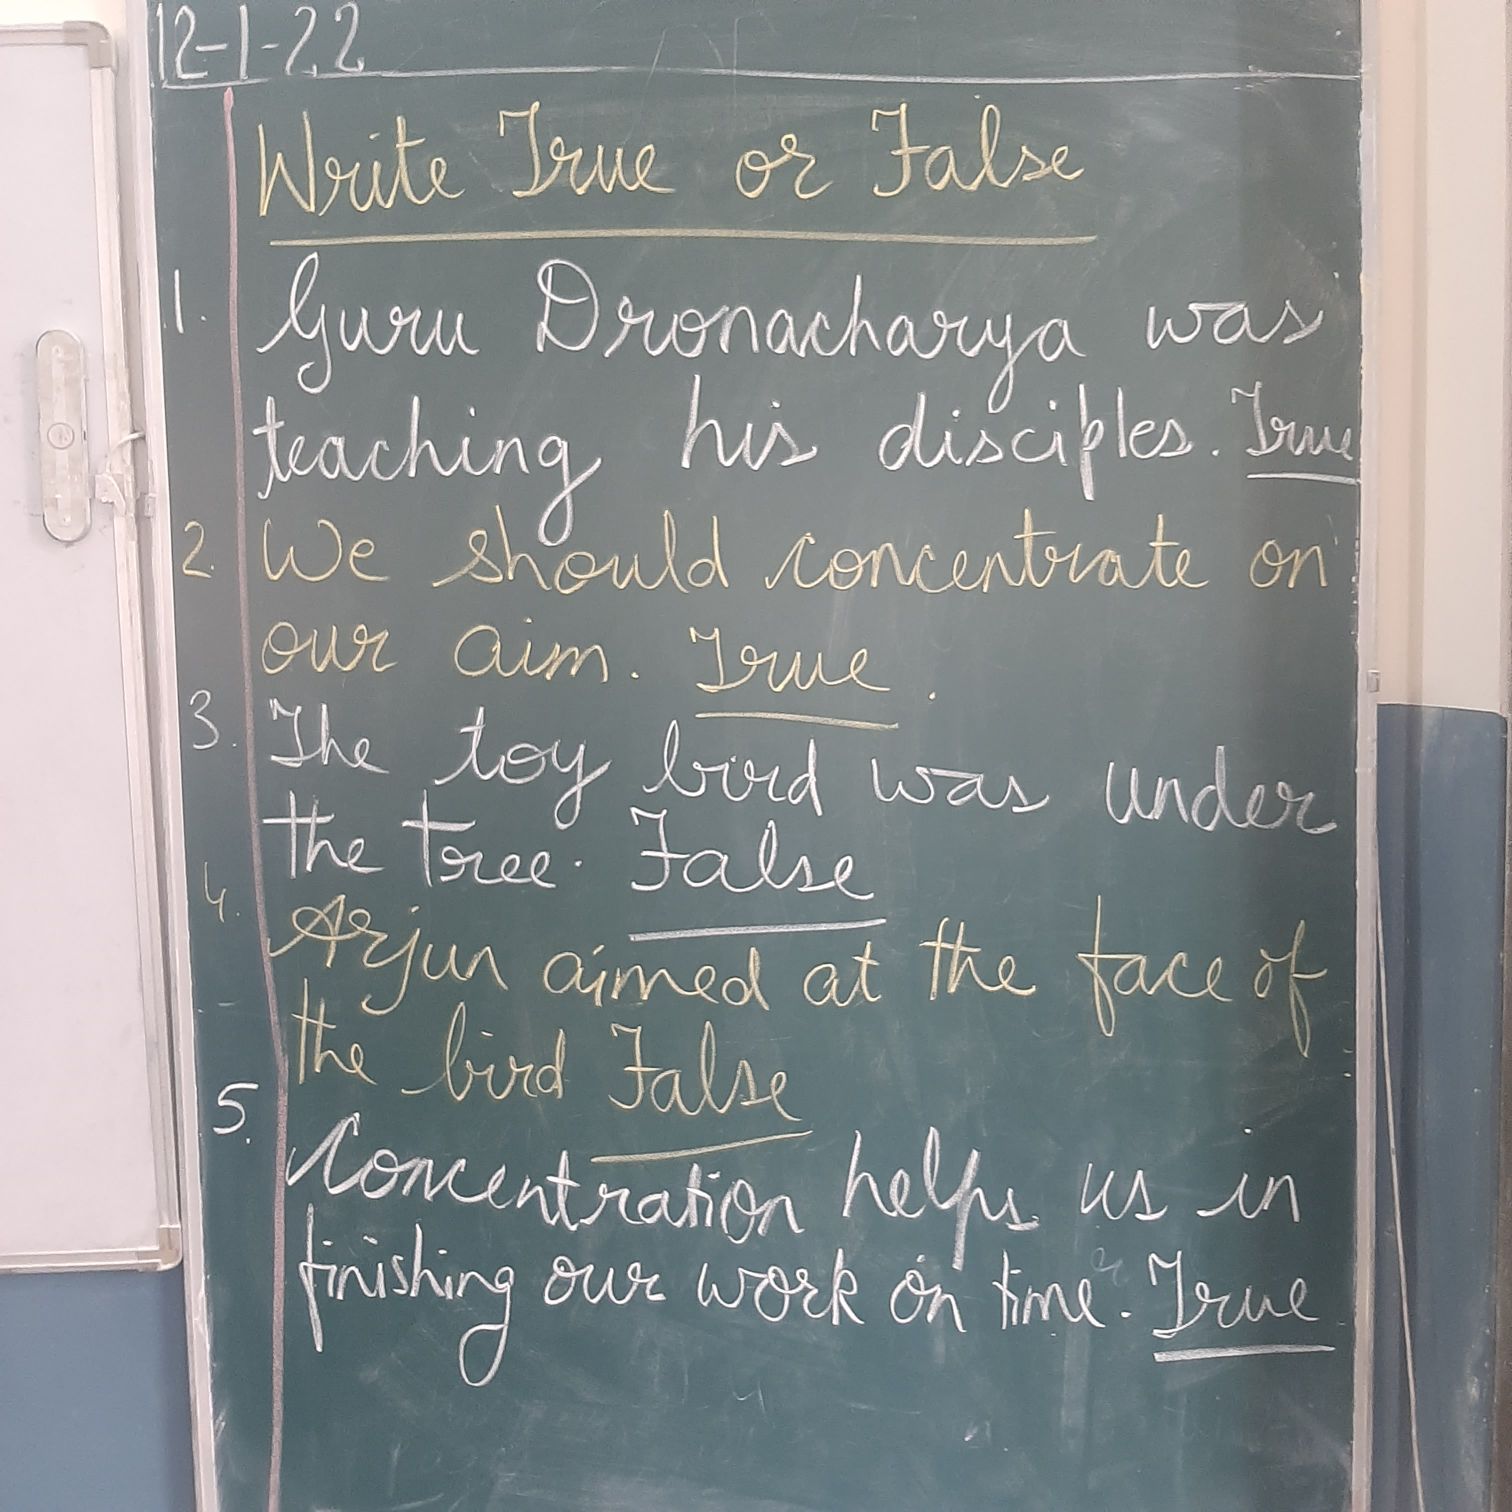 12-1-22
Write True or False
1. Guru Dronacharya was
teaching his disciples. True
2. We should concentrate on
our aim. True.
3. The toy bird was under
the tree. False
4. Arjun aimed at the face of
the bird False
5. Concentration helps us in
finishing our work on time. True